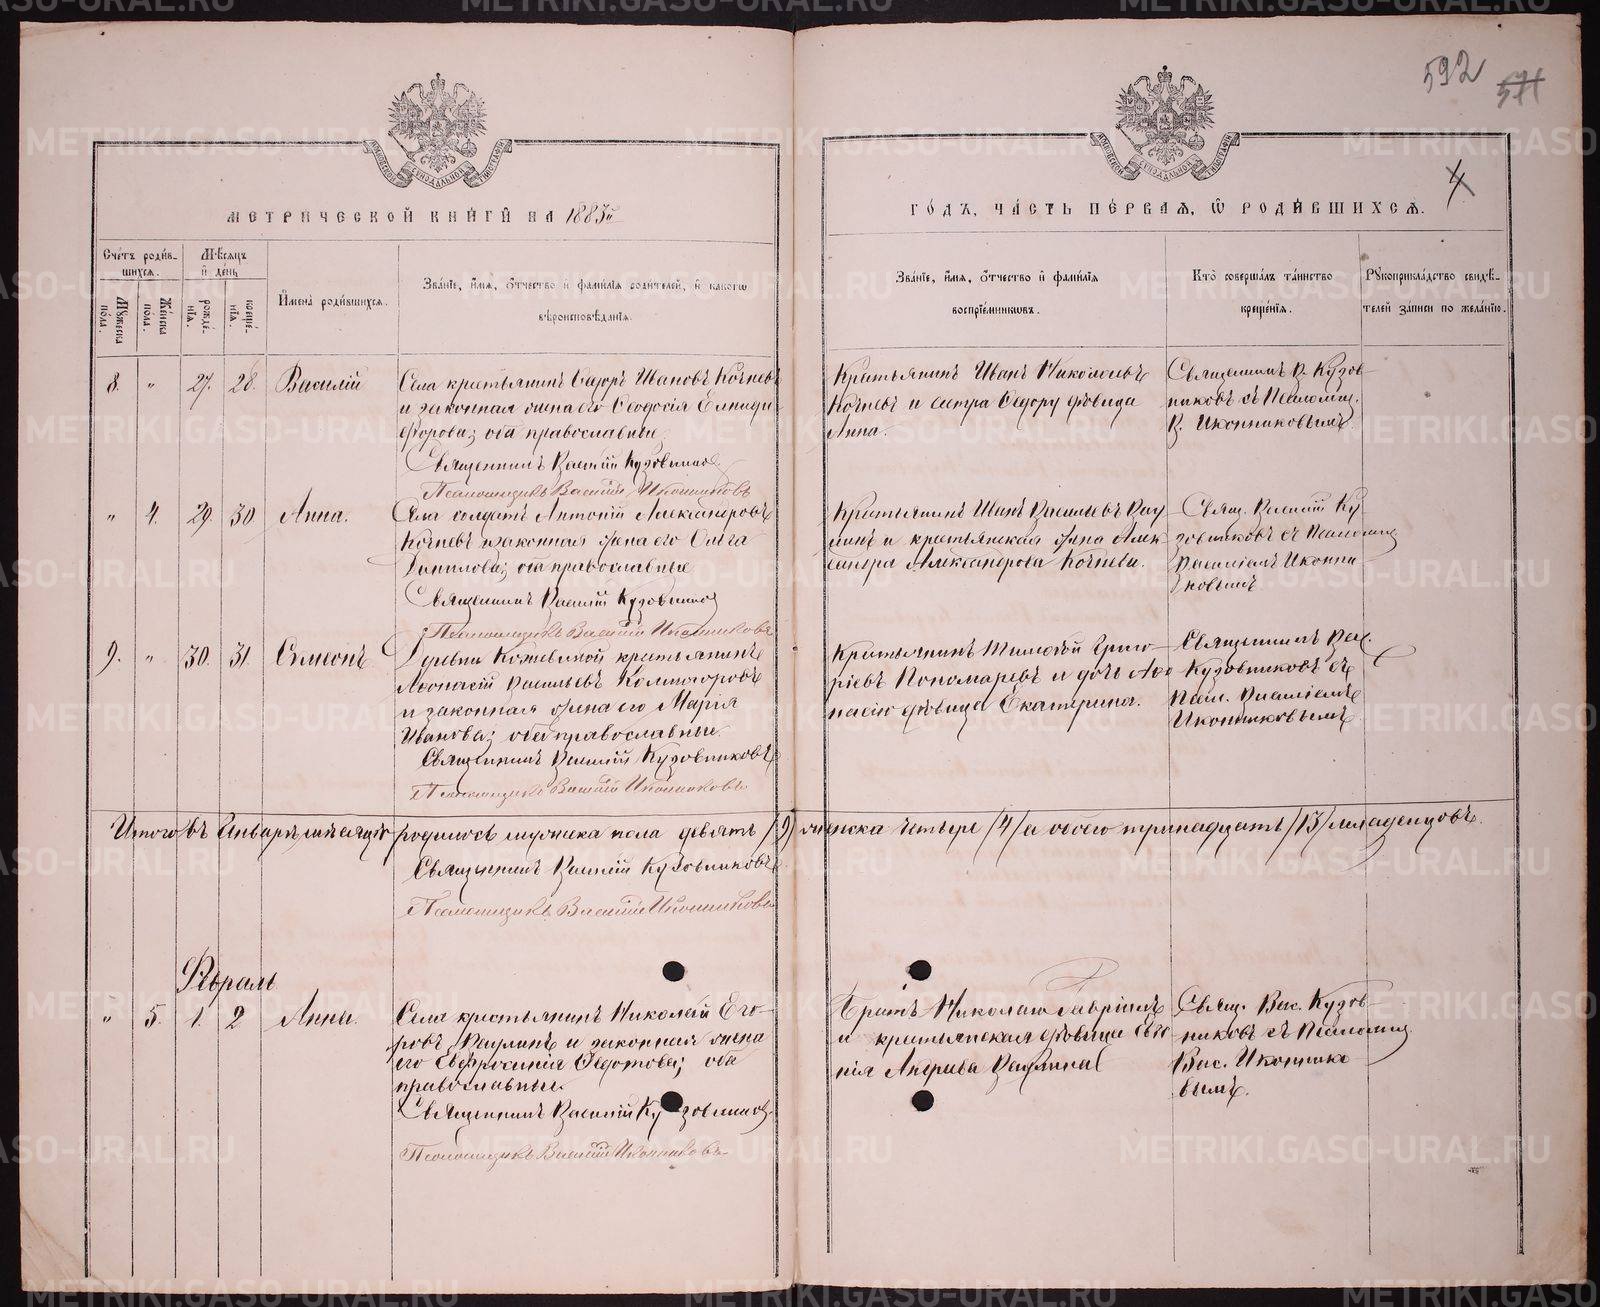 592
571
4
МЕТРИЧЕСКОЙ КНИГИ НА 1883й
ГОДЪ, ЧАСТЬ ПЕРВАЯ, Ѡ РОДИВШИХСЯ.
Счетъ родившихся.
Мужеска пола.
Женска пола.
Мѣсяцъ и день
рожденія.
крещенія.
Имена родившихся.
Званіе, имя, отчество и фамилія родителей, и какогѡ
вѣроисповѣданія.
Званіе, имя, отчество и фамилія
воспріемникѡвъ.
Кто совершалъ таинство
крещенія.
Рукоприкладство свидѣтелей записи по желанію.
8. " 27. 28. Василій
Села крестьянинъ Ѳедоръ Ивановъ Кочневъ
и законная жена его Ѳеодосія Елпиди-
форова; оба православные
Священникъ Василій Кузовниковъ
Псаломщикъ Василій Иконниковъ
Крестьянинъ Иванъ Николаевъ
Кочневъ и сестра Ѳедору дѣвица
Анна.
Священникъ В. Кузов-
никовъ съ Псаломщ.
В. Иконниковымъ
" 4. 29. 30 Анна.
Села солдатъ Антоній Александровъ
Кочневъ и законная жена его Ольга
Данилова; оба православные
Священникъ Василій Кузовниковъ
Псаломщикъ Василій Иконниковъ
Крестьянинъ Иванъ Васильевъ
и крестьянская жена Алек-
сандра Александрова Кочнева.
Свящ. Василій Ку-
зовниковъ съ Псаломщ
Василіемъ Иконни-
ковымъ
9. " 30. 31. Симеонъ
Деревни крестьянинъ
Аѳонасій Васильевъ Колмогоровъ
и законная жена его Марія
Иванова; оба православные.
Священникъ Василій Кузовниковъ
Псаломщикъ Василій Иконниковъ
Крестьянинъ Тимоѳей Григо-
ріевъ Пономаревъ и дочь Аѳо-
насію дѣвица Екатерина.
Священникъ Вас.
Кузовниковъ съ
Псал. Василіемъ
Иконниковымъ
Итого въ Январѣ мѣсяцѣ родилось мужеска пола девять /9/ женска четыре /4/ а обоего тринадцать /13/ младенцовъ.
Священникъ Василій Кузовниковъ
Псаломщикъ Василій Иконниковъ
Февраль
" 5. 1. 2 Анна.
Села крестьянинъ Николай Его-
ровъ Ваулинъ и законная жена
его Евфросинія Ѳедотова; оба
православные.
Священникъ Василій Кузовниковъ
Псаломщикъ Василій Иконниковъ
Братъ Николаю Гавріилъ
и крестьянская дѣвица Евге-
нія Андреева Ваулина
Свящ. Вас. Кузов-
никовъ съ Псаломщ.
Вас. Иконнико-
вымъ.
METRIKI.GASO-URAL.RU